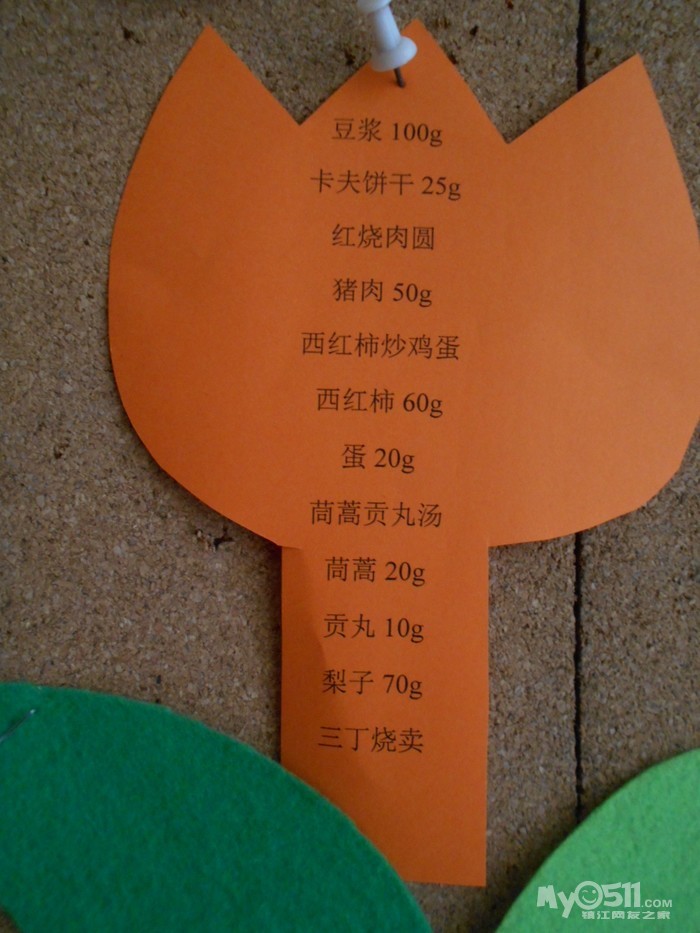 豆浆 100g
卡夫饼干 25g
红烧肉圆
猪肉 50g
西红柿炒鸡蛋
西红柿 60g
蛋 20g
茼蒿贡丸汤
茼蒿 20g
贡丸 10g
梨子 70g
三丁烧卖
My0511.COM
镇江网友之家